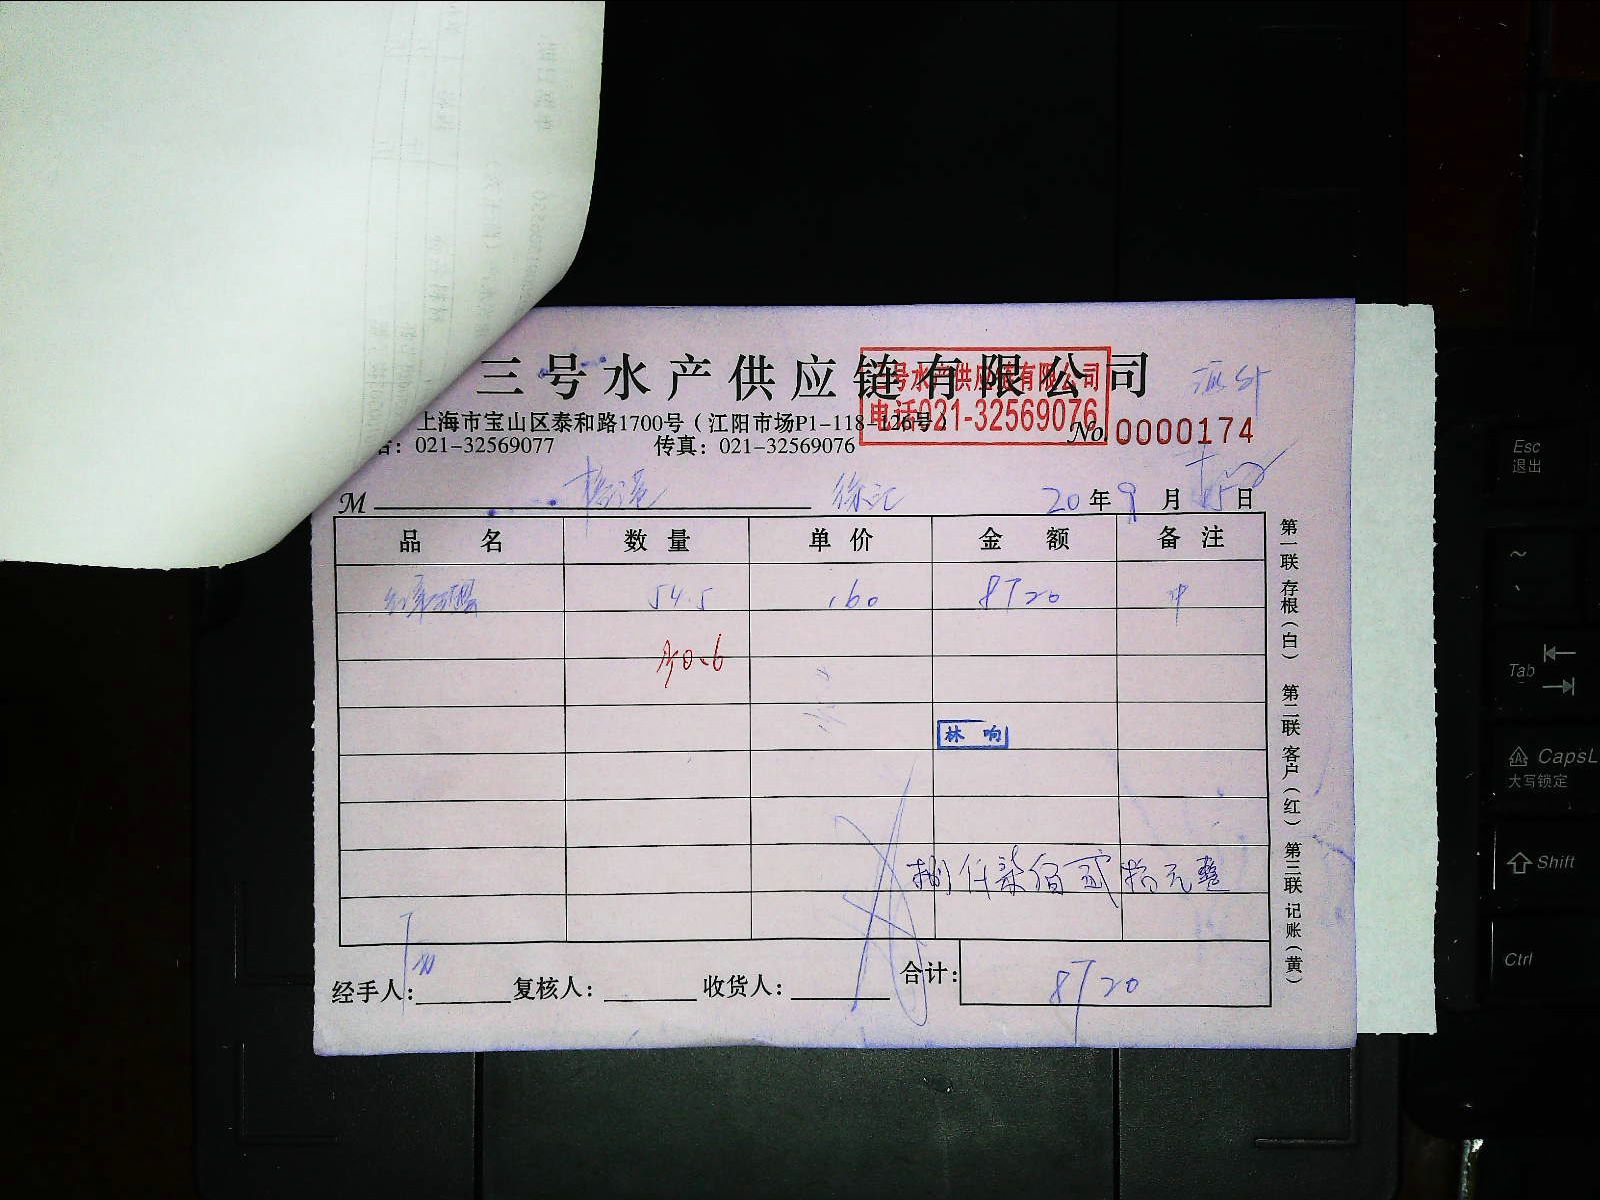 三号水产供应链有限公司
三号水产供应链有限公司
电话021-32569076
上海市宝山区泰和路1700号（江阳市场P1-118-126号）
话：021-32569077 传真：021-32569076
No 0000174
M 徐汇 20年9月15日
品名 数量 单价 金额 备注
54.5 160 8720
林响
捌仟柒佰贰拾元整
经手人： 复核人： 收货人： 合计： 8720
第一联 存根（白） 第二联 客户（红） 第三联 记账（黄）
Esc
退出
~
Tab
CapsL
大写锁定
Shift
Ctrl